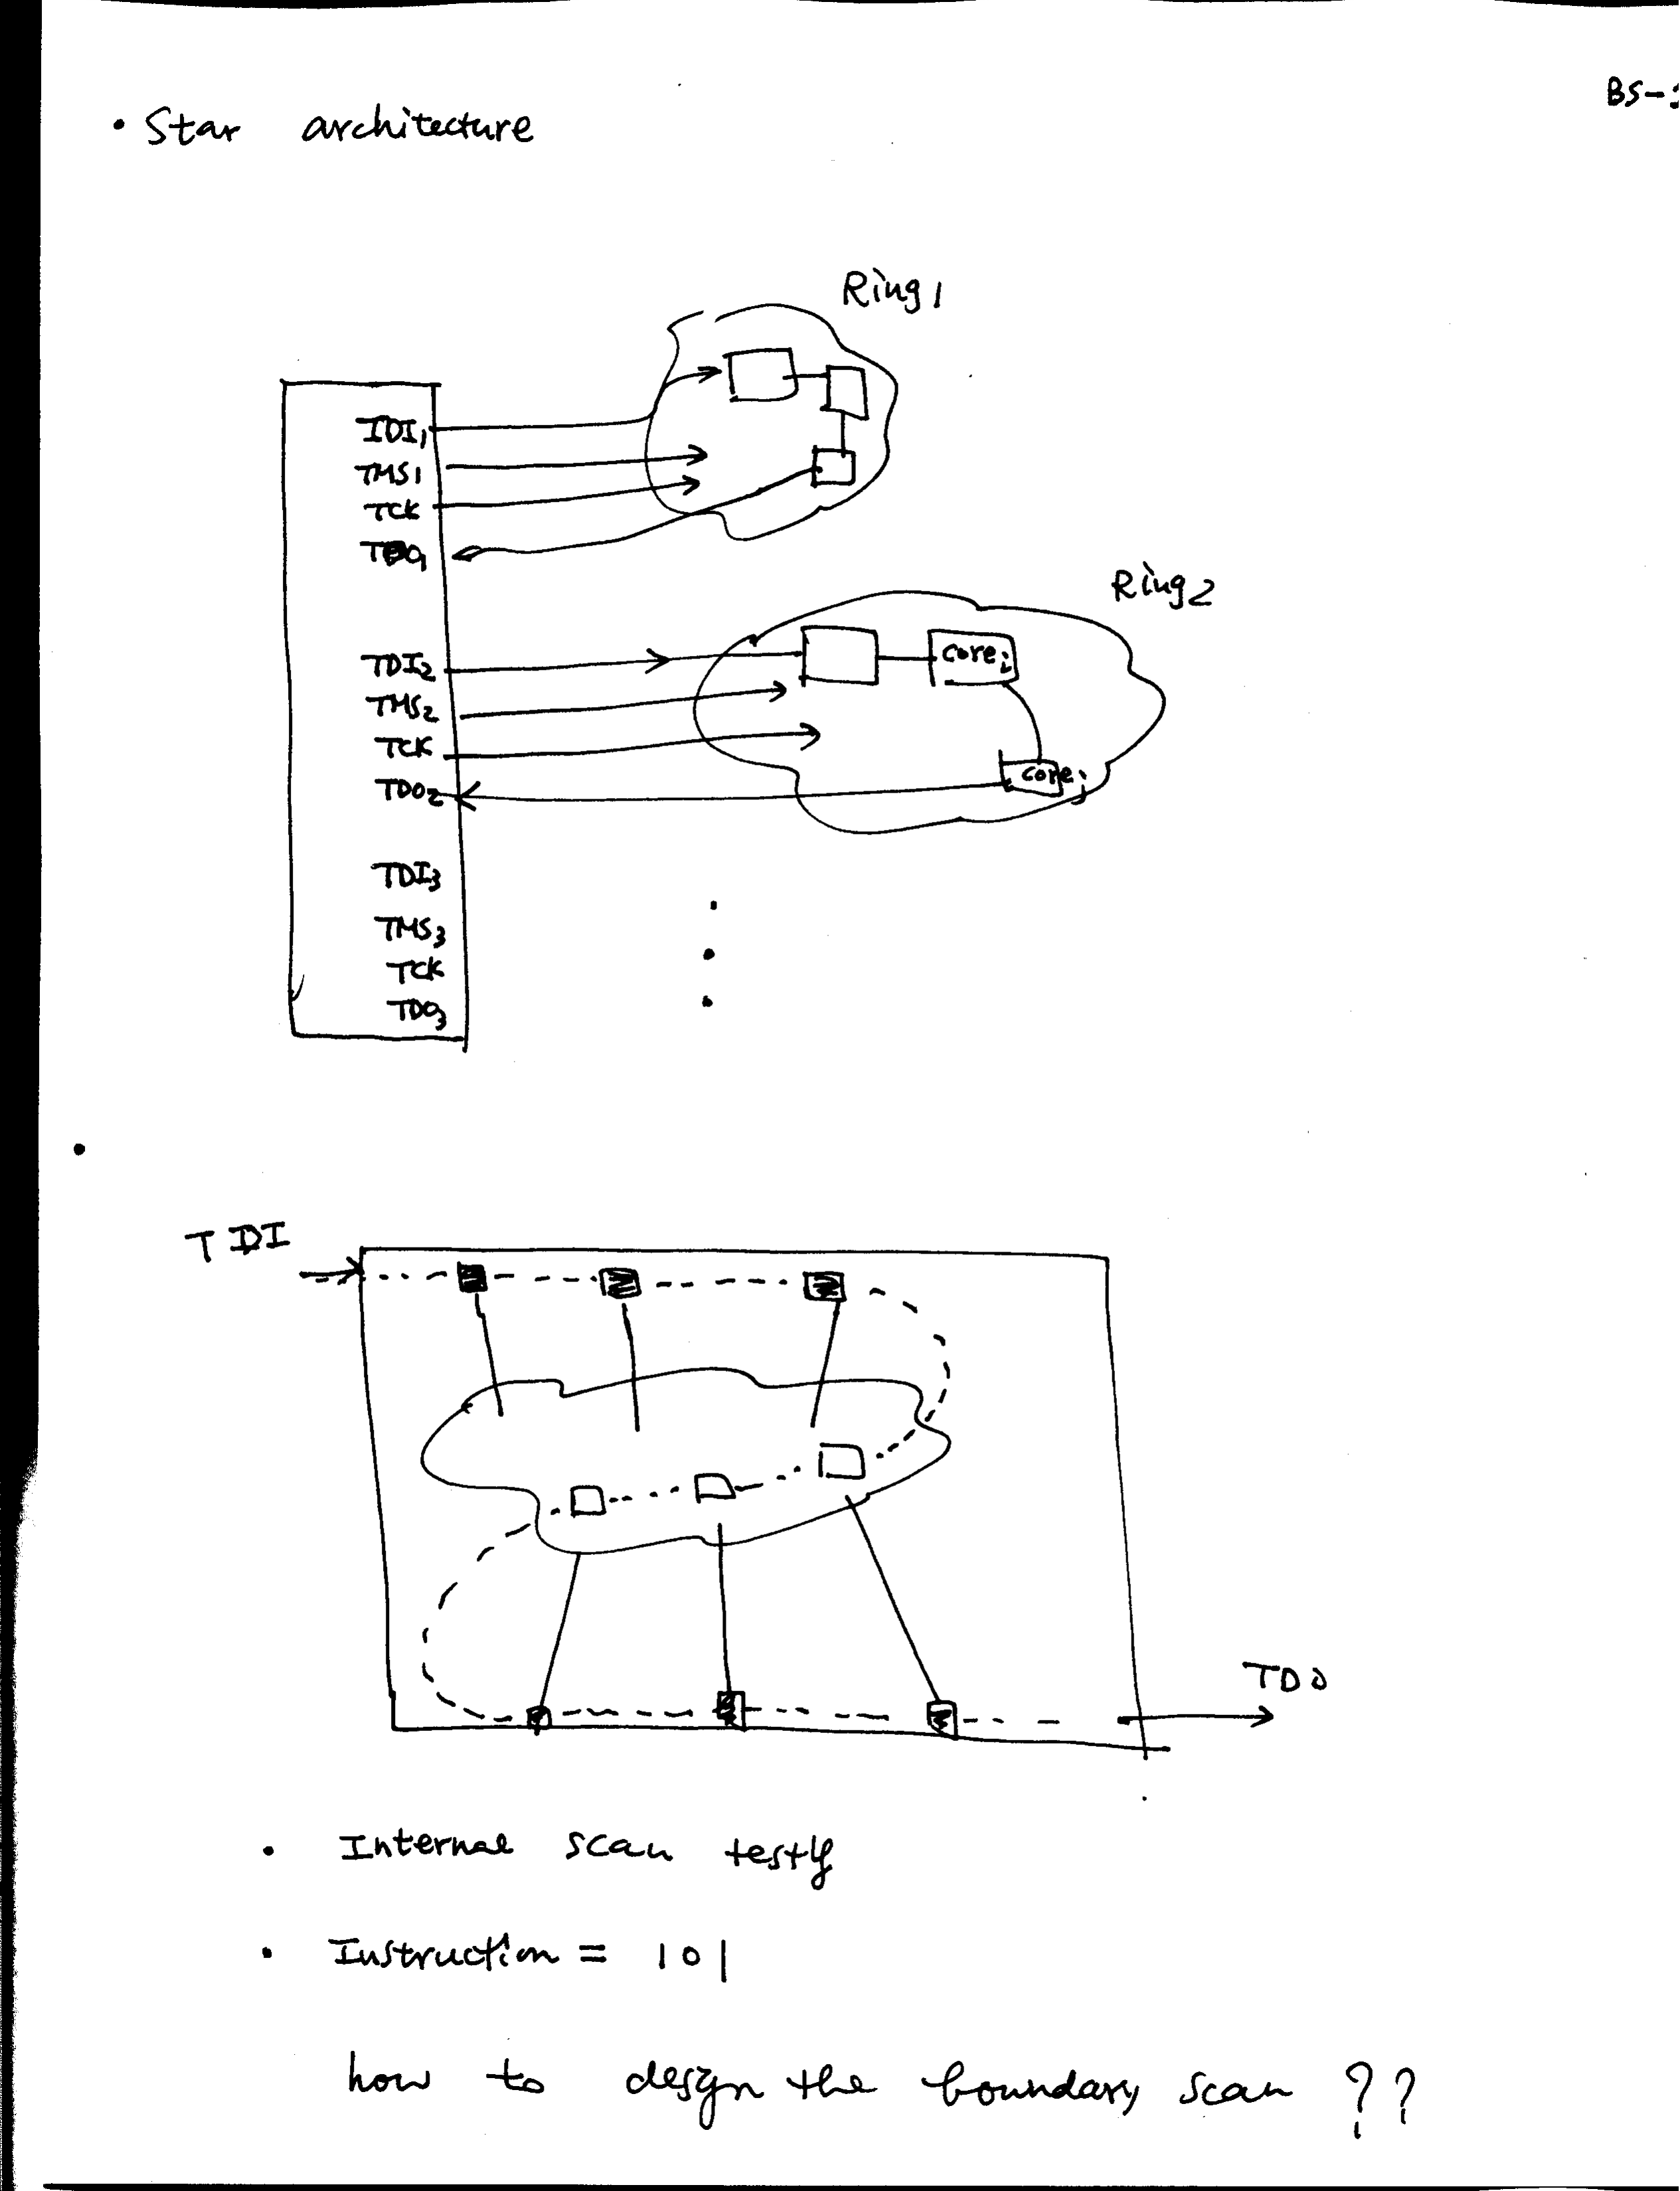 BS-
• Star architecture
Ring1
TDI1
TMS1
TCK
TDO1
Ring2
TDI2
core i
TMS2
TCK
core j
TDO2
TDI3
TMS3
TCK
TDO3
•
TDI
TDO
• Internal scan
• Instruction = 101
how to design the boundary scan ??